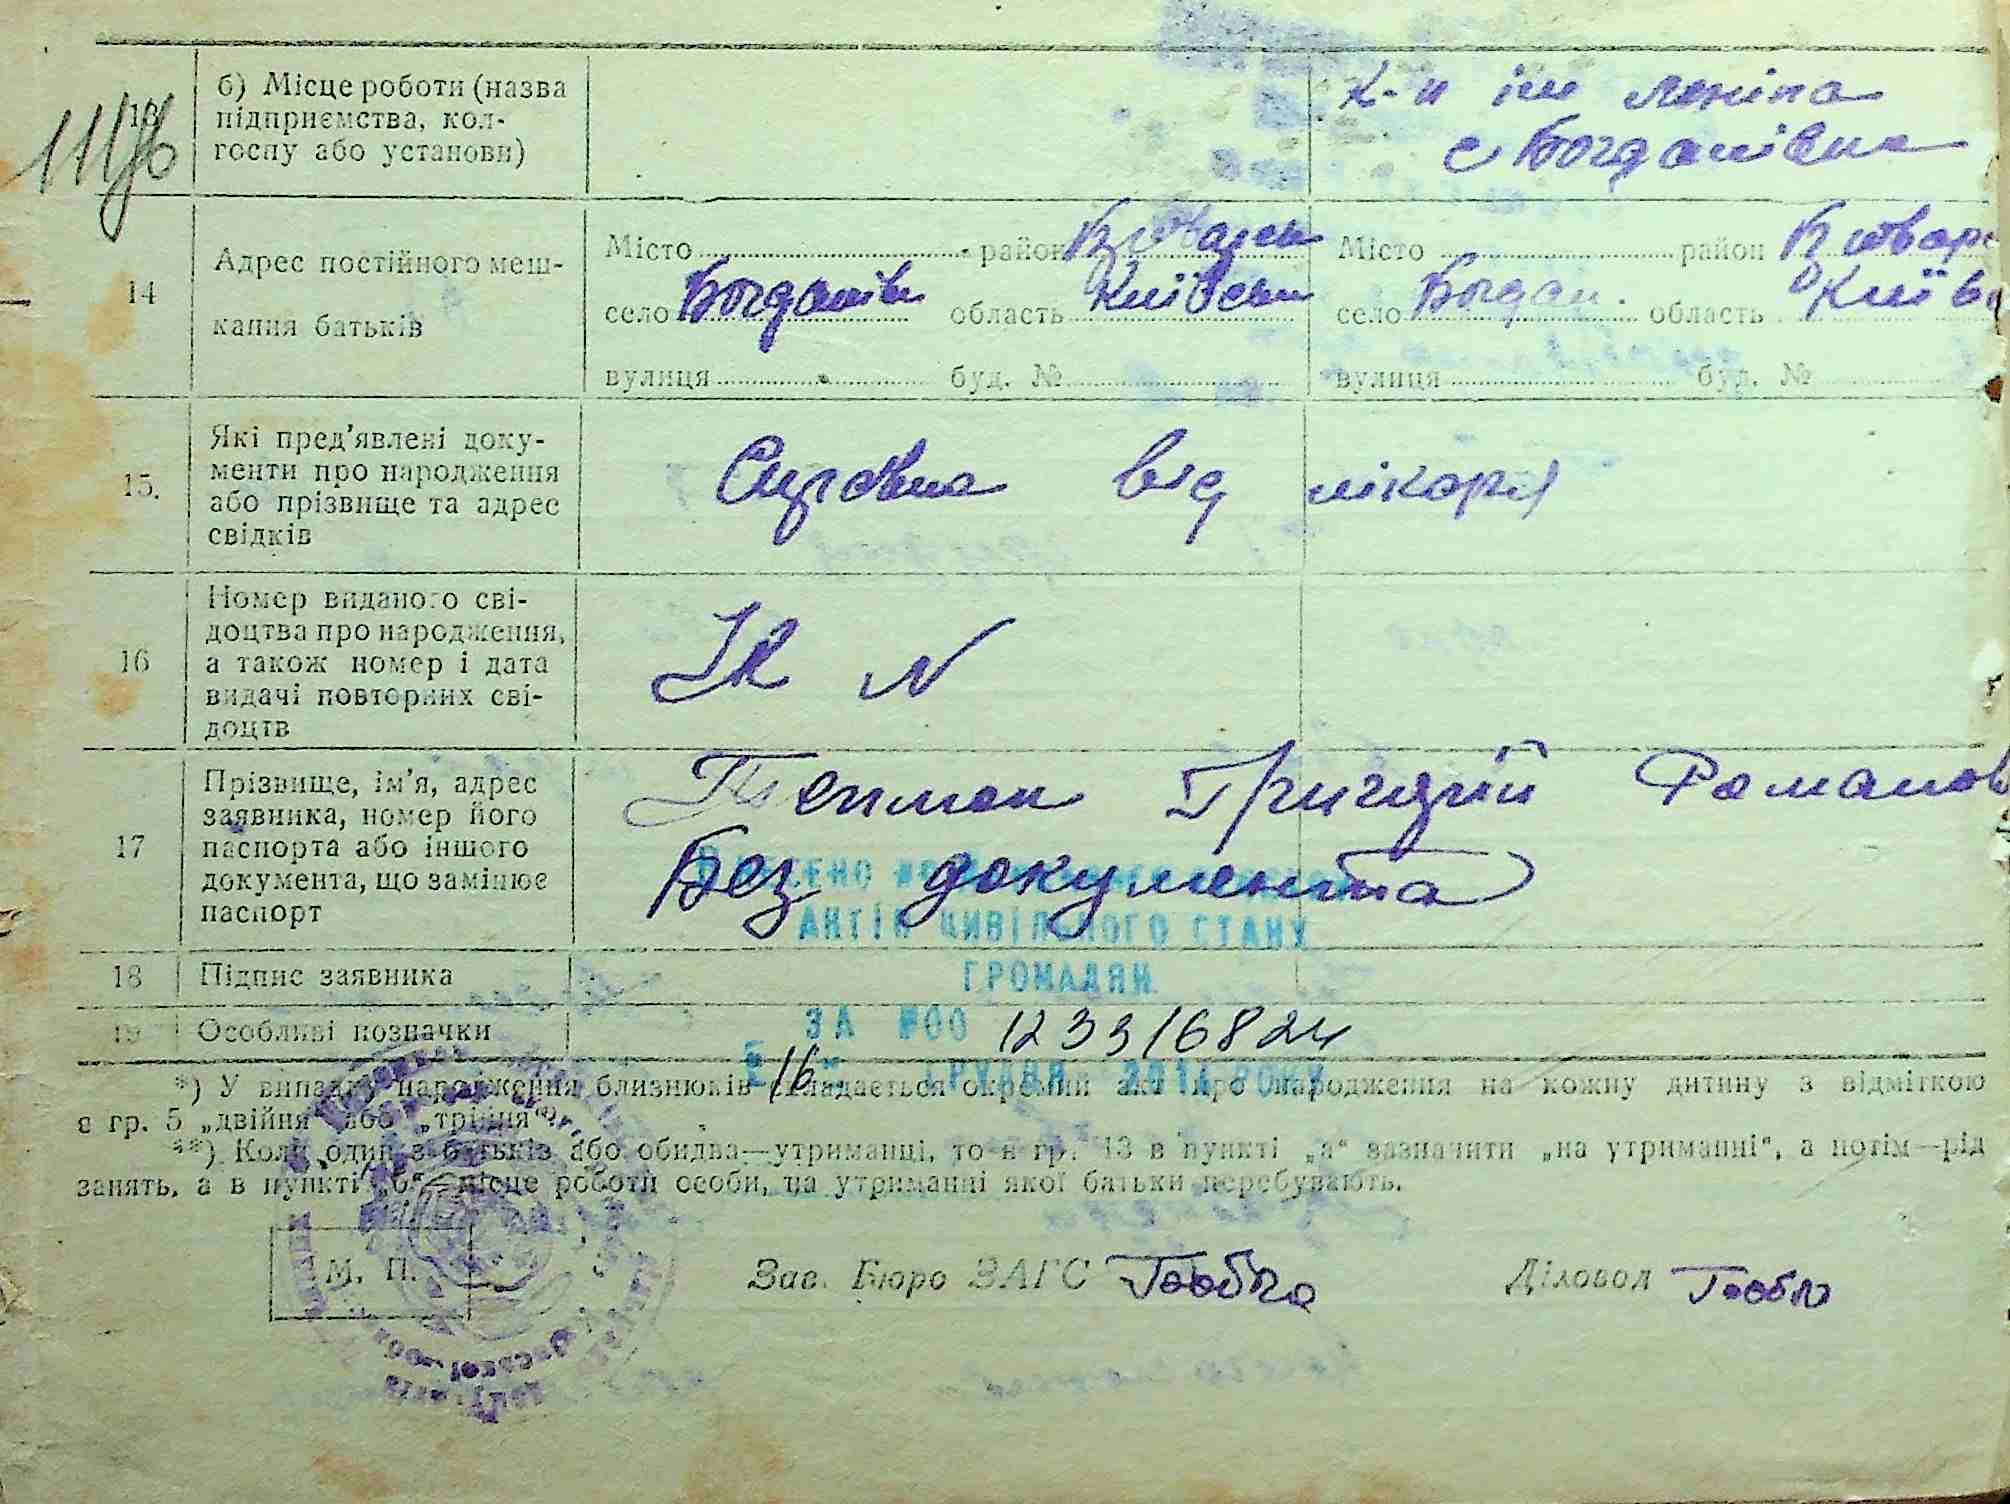 б) Місце роботи (назва
13
підприємства, кол-
госпу або установи)
К-п ім Леніна
с Богданівна
14
Адрес постійного меш-
кання батьків
Місто район Місто район
село Богданівн область Київськ село Богдан. область Київ
вулиця буд. № вулиця буд. №
15.
Які пред'явлені доку-
менти про народження
або прізвище та адрес
свідків
від лікаря
16
Номер виданого сві-
доцтва про народження,
а також номер і дата
видачі повторних сві-
доцтв
N
17
Прізвище, ім'я, адрес
заявника, номер його
паспорта або іншого
документа, що замінює
паспорт
Григорій Романов
Без документа
АКТІВ ЦИВІЛЬНОГО СТАНУ
ГРОМАДЯН
18 Підпис заявника
19 Особливі позначки
ЗА №00 123316824
16 ГРУДНЯ РОКУ
*) У випадку народження близнюків складається окремий акт про народження на кожну дитину з відміткою
в гр. 5 „двійня" або „трійня".
**) Коли один з батьків або обидва—утриманці, то в гр. 13 в пункті „а" зазначити „на утриманні", а потім—рід
занять, а в пункті „б"—місце роботи особи, на утриманні якої батьки перебувають.
М. П.
Зав. Бюро ЗАГС
Діловод